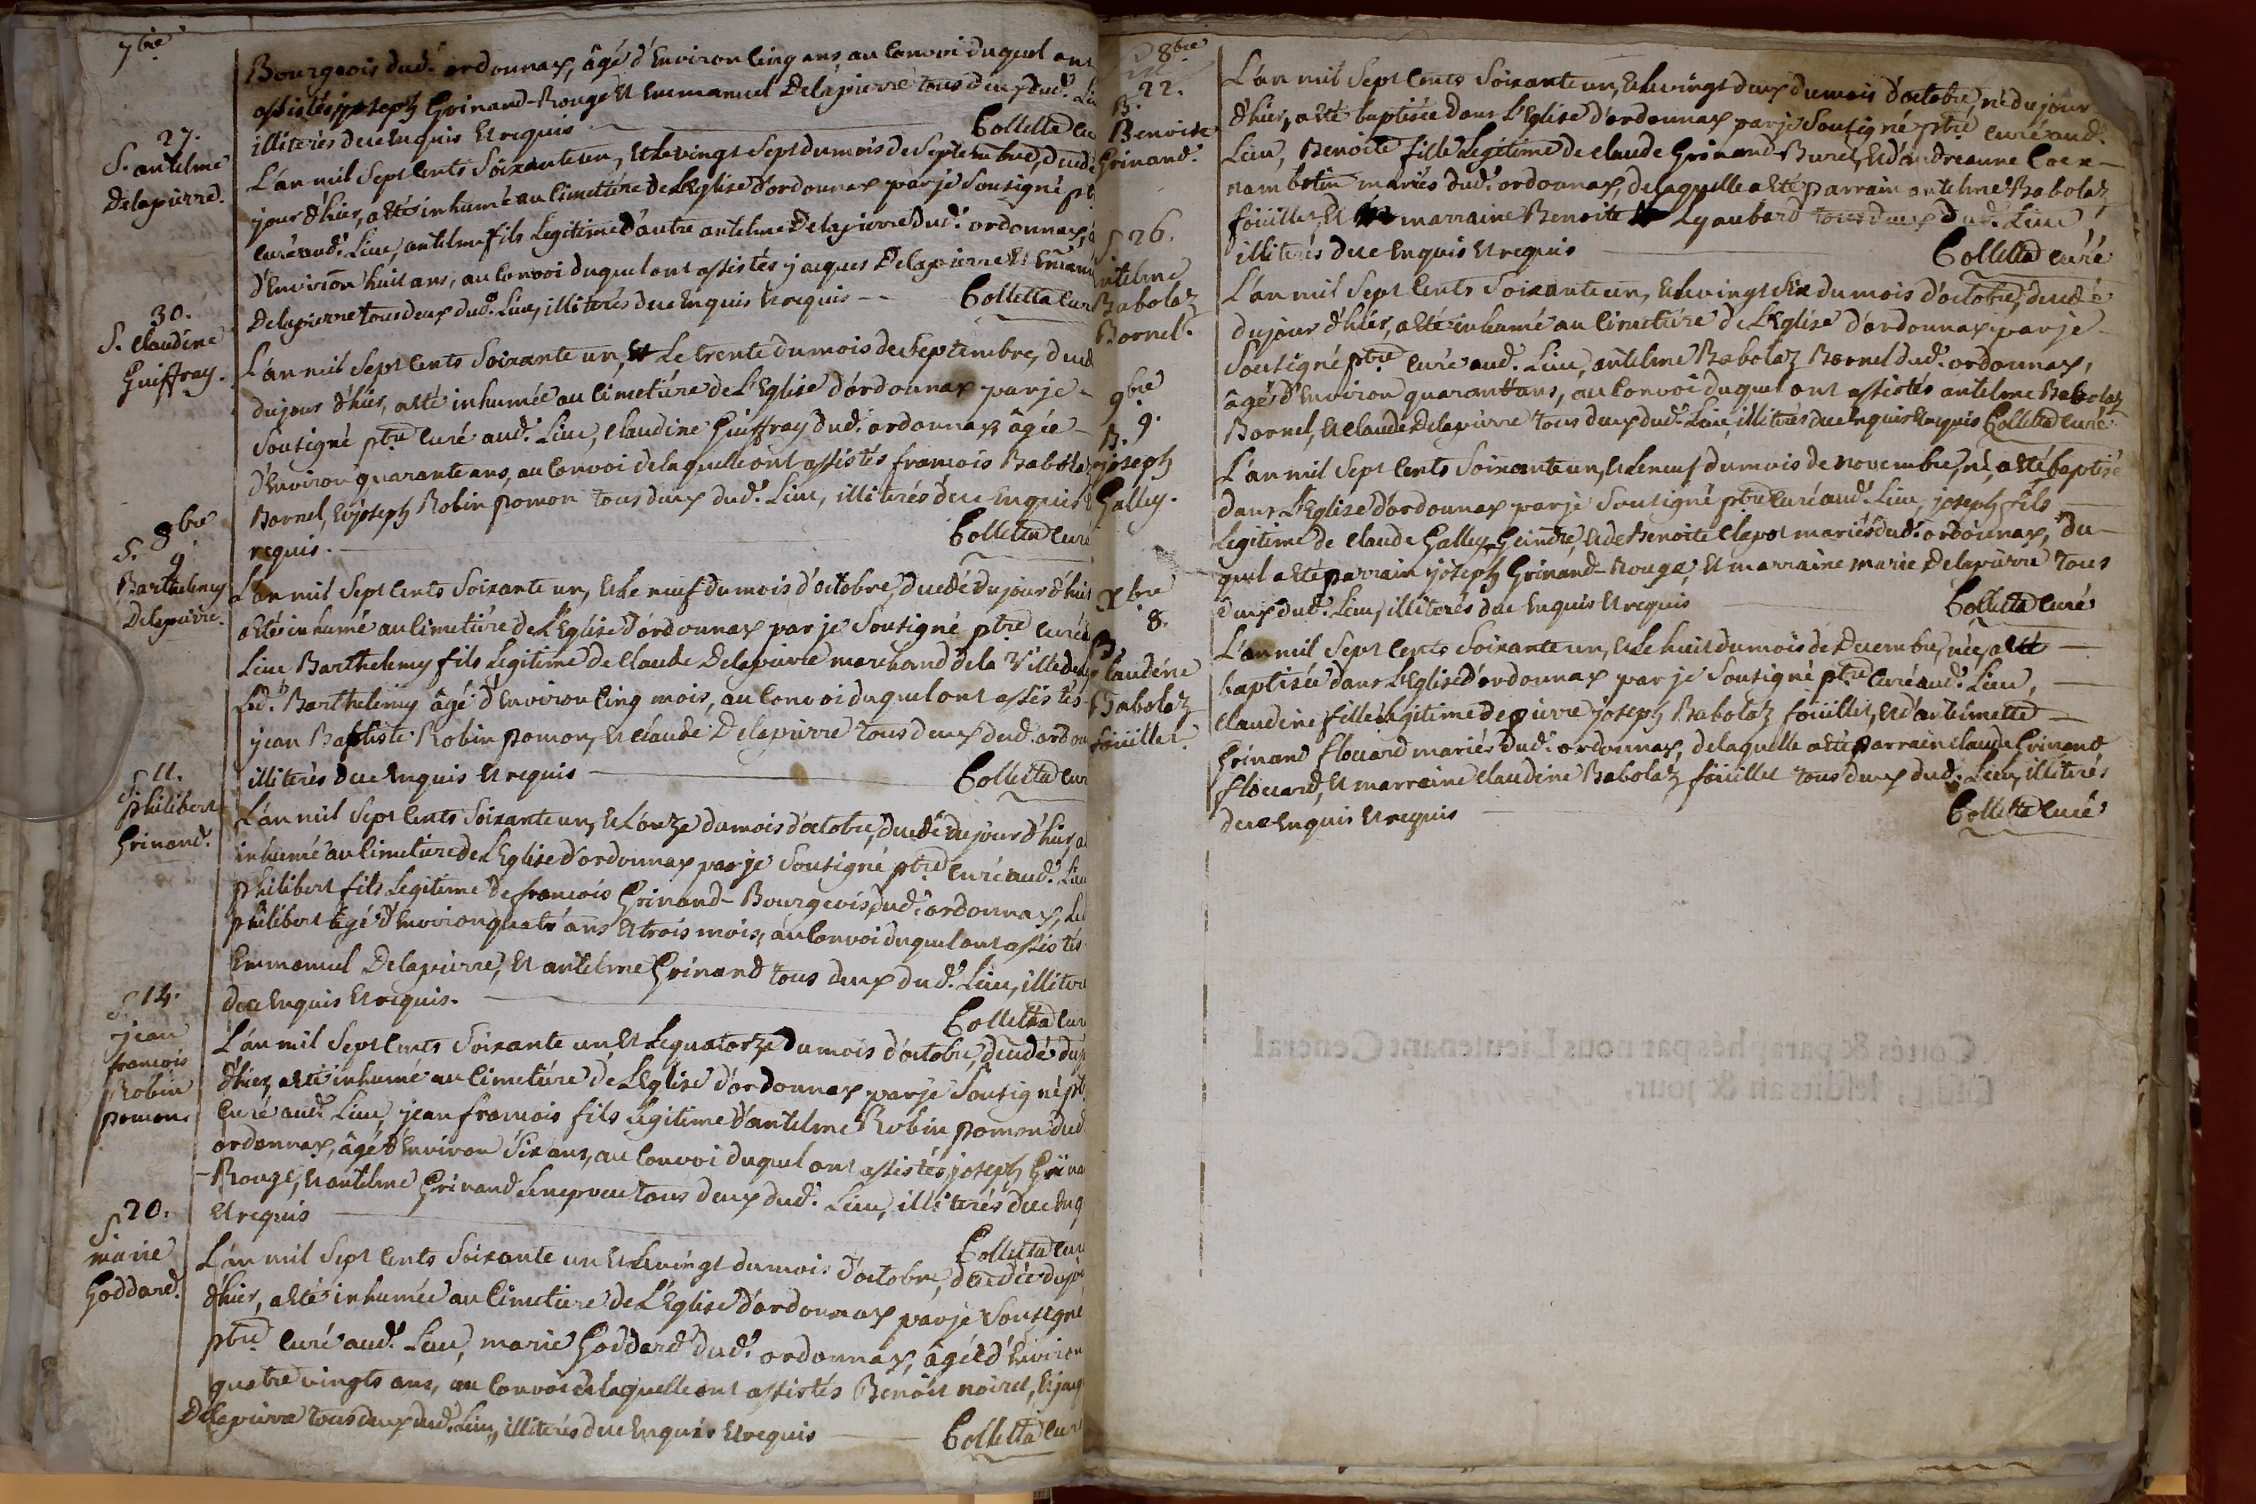 7bre
Bourgeois dud. ordonnax, âgé d'Environ Cinq ans, au Convoi duquel ont
assistés joseph Grinand-Rouge Et Emmanuel Delapierre tous deux dud. Lieu
illiterés de ce Enquis Et requis Colletta Curé
27.
S. antelme
Delapierre.
L'an mil Sept Cents Soixante un, Et le vingt Sept du mois de Septembre, decedé
jour d'hier, a été inhumé au Cimetiére de L'Eglise d'ordonnax par je Sousigné
Curé aud. Lieu, antelme fils Legitime d'autre antelme Delapierre dud. ordonnax,
d'Environ huit ans, au Convoi duquel ont assistés jacques Delapierre Et
Delapierre tous deux dud. Lieu, illiterés de ce Enquis Et requis -- Colletta Curé
30.
S. Claudine
Guiffray.
L'an mil Sept Cents Soixante un, Et Le trente du mois de Septembre,
du jour d'hier, a été inhumée au Cimetiére de L'Eglise d'ordonnax par je -
Sousigné ptre Curé aud. Lieu, Claudine Guiffray dud. ordonnax âgée -
d'Environ quarante ans, au Convoi de laquelle ont assistés francois Babolaz
Bornel, Et joseph Robin pomon tous deux dud. Lieu, illiterés de ce Enquis
requis. Colletta Curé
8bre
S. 9
Barthelemy
Delapierre.
L'an mil Sept Cents Soixante un, Et Le neuf du mois d'octobre, decedé du jour d'hier
a été inhumé au Cimetiére de L'Eglise d'ordonnax par je Sousigné ptre Curé
Lieu Barthelemy fils Legitime de Claude Delapierre marchand de la Ville de
Led. Barthelemy âgé d'Environ Cinq mois, au Convoi duquel ont assistés
jean Baptiste Robin pomon, Et Claude Delapierre tous deux dud. ordonnax
illiterés de ce Enquis Et requis Colletta Curé
S. 11.
philibert
Grinand.
L'an mil Sept Cents Soixante un, Et L'onze du mois d'octobre, decedé du jour d'hier, a
inhumé au Cimetiére de L'Eglise d'ordonnax par je Sousigné ptre Curé aud. Lieu
philibert fils Legitime de francois Grinand-Bourgeois dud. ordonnax, Led
philibert âgé d'Environ quatre ans Et trois mois, au Convoi duquel ont assistés
Emmanuel Delapierre, Et antelme Grinand tous deux dud. Lieu, illiterés
de ce Enquis Et requis. Colletta Curé
S. 14.
jean
francois
Robin
pomon.
L'an mil Sept Cents Soixante un Et Le quatorze du mois d'octobre, decedé du
d'hier, a été inhumé au Cimetiére de L'Eglise d'ordonnax par je Sousigné
Curé aud. Lieu, jean francois fils Legitime d'antelme Robin pomon dud
ordonnax, âgé d'Environ Six ans, au Convoi duquel ont assistés joseph Grinand
-Rouge, Et antelme Grinand Le nepveu tous deux dud. Lieu, illiterés de ce Enq
Et requis Colletta Curé
S. 20.
marie
Goddard.
L'an mil Sept Cents Soixante un Et Le vingt du mois d'octobre, decedée du
d'hier, a été inhumée au Cimetiére de L'Eglise d'ordonnax par je Sousigné
ptre Curé aud. Lieu, marie Goddard dud. ordonnax, âgée d'Environ
quatre vingts ans, au Convoi de laquelle ont assistés Benoit noiret, Et
Delapierre tous deux dud. Lieu, illiterés de ce Enquis Et requis Colletta Curé
8bre
22.
B.
Benoite
Grinand.
L'an mil Sept Cents Soixante un, Et Le vingt deux du mois d'octobre, née du jour
d'hier, a été baptisée dans L'Eglise d'ordonnax par je Sousigné ptre Curé aud.
Lieu, Benoite fille Legitime de Claude Grinand-Buret, Et d'andreanne
mariés dud. ordonnax, de laquelle a été parrain antelme Babolaz
foüillet, Et marraine Benoite tous deux dud. Lieu
illiterés de ce Enquis Et requis Colletta Curé
S 26.
antelme
Babolaz
Bornel.
L'an mil Sept Cents Soixante un, Et Le vingt Six du mois d'octobre, decedé
du jour d'hier, a été inhumé au Cimetiére de L'Eglise d'ordonnax par je -
Sousigné ptre Curé aud. Lieu, antelme Babolaz Bornel dud. ordonnax,
âgé d'Environ quarante ans, au Convoi duquel ont assistés antelme Babolaz
Bornel, Et Claude Delapierre tous deux dud. Lieu, illiterés de ce Enquis Et requis Colletta Curé
9bre
9.
B.
joseph
Galley.
L'an mil Sept Cents Soixante un, Et Le neuf du mois de novembre, né, a été baptisé
dans L'Eglise d'ordonnax par je Sousigné ptre Curé aud. Lieu, joseph fils
Legitime de Claude Galley Geindre, Et de Benoite Clapot mariés dud. ordonnax, du-
quel a été parrain joseph Grinand-Rouge, Et marraine marie Delapierre tous
deux dud. Lieu, illiterés de ce Enquis Et requis Colletta Curé
Xbre
8.
B.
Claudine
Babolaz
foüillet.
L'an mil Sept Cents Soixante un, Et Le huit du mois de Decembre, née, a été
baptisée dans L'Eglise d'ordonnax par je Sousigné ptre Curé aud. Lieu,
Claudine fille Legitime de pierre joseph Babolaz foüillet, Et d'antelmette
Grinand flouard mariés dud. ordonnax, de laquelle a été parrain Claude Grinand
flouard, Et marraine Claudine Babolaz foüillet tous deux dud. Lieu, illiterés
de ce Enquis Et requis Colletta Curé
Cottés & paraphés par nous Lieutenant General
lesdits an & jour.